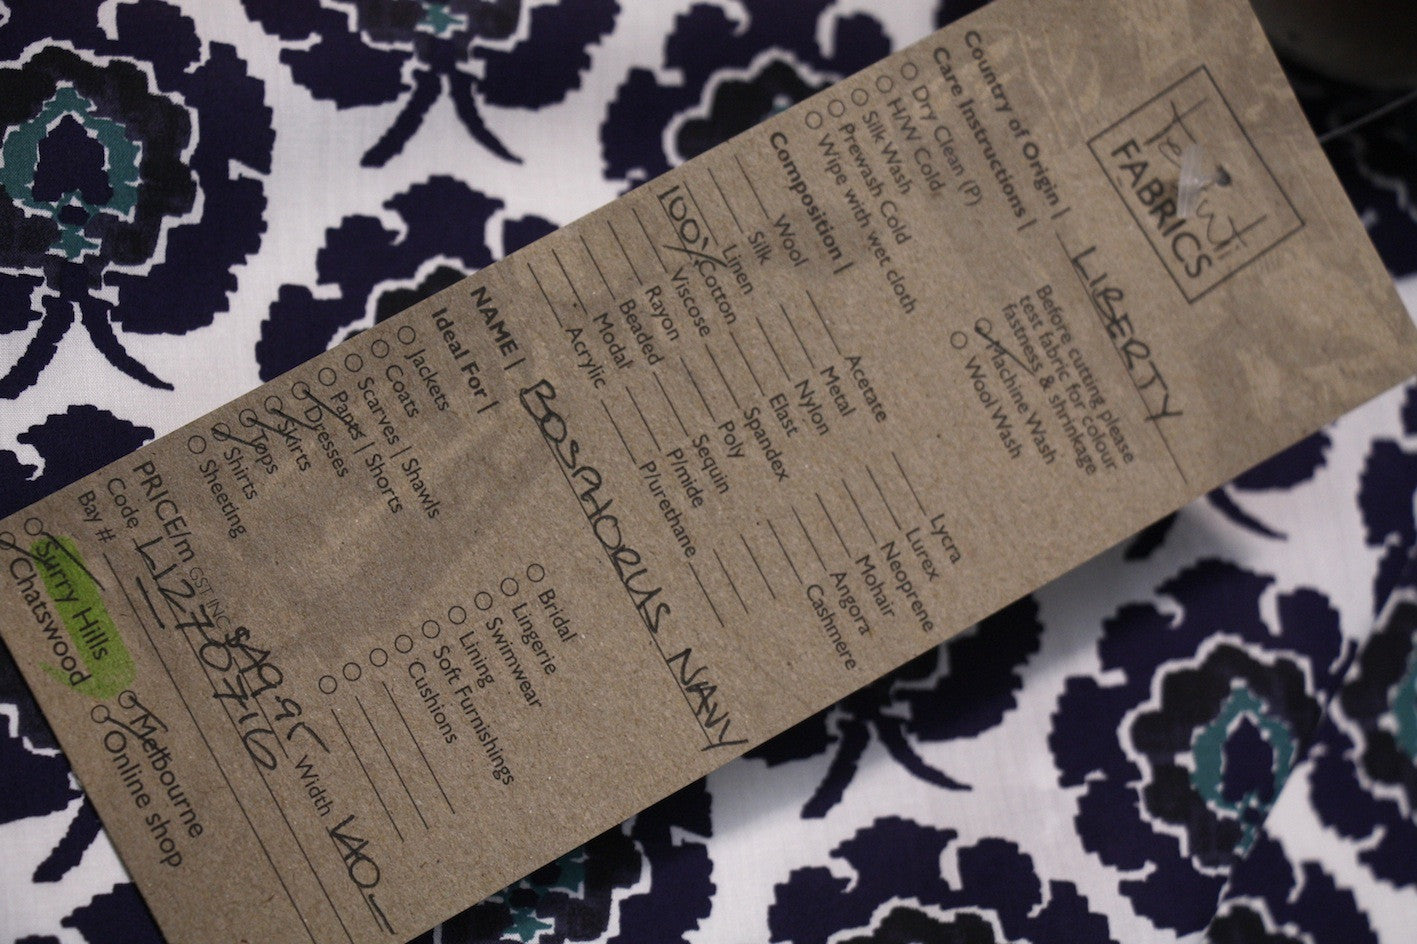 FABRICS
Country of Origin | LIBERTY
Care Instructions |
Dry Clean (P)
H/W Cold
Silk Wash
Prewash Cold
Wipe with wet cloth
Before cutting please
test fabric for colour
fastness & shrinkage
Machine Wash
Wool Wash
Composition |
Wool
Silk
Linen
100% Cotton
Viscose
Rayon
Beaded
Modal
Acrylic
Acetate
Metal
Nylon
Elast
Spandex
Poly
Sequin
P/mide
P/urethane
Lycra
Lurex
Neoprene
Mohair
Angora
Cashmere
NAME | BOSPHORUS NAVY
Ideal For |
Jackets
Coats
Scarves | Shawls
Pants | Shorts
Dresses
Skirts
Tops
Shirts
Sheeting
Bridal
Lingerie
Swimwear
Lining
Soft Furnishings
Cushions
PRICE/m GST INC $49.95 Width 140
Code L1270716
Bay #
Surry Hills
Chatswood
Melbourne
Online shop